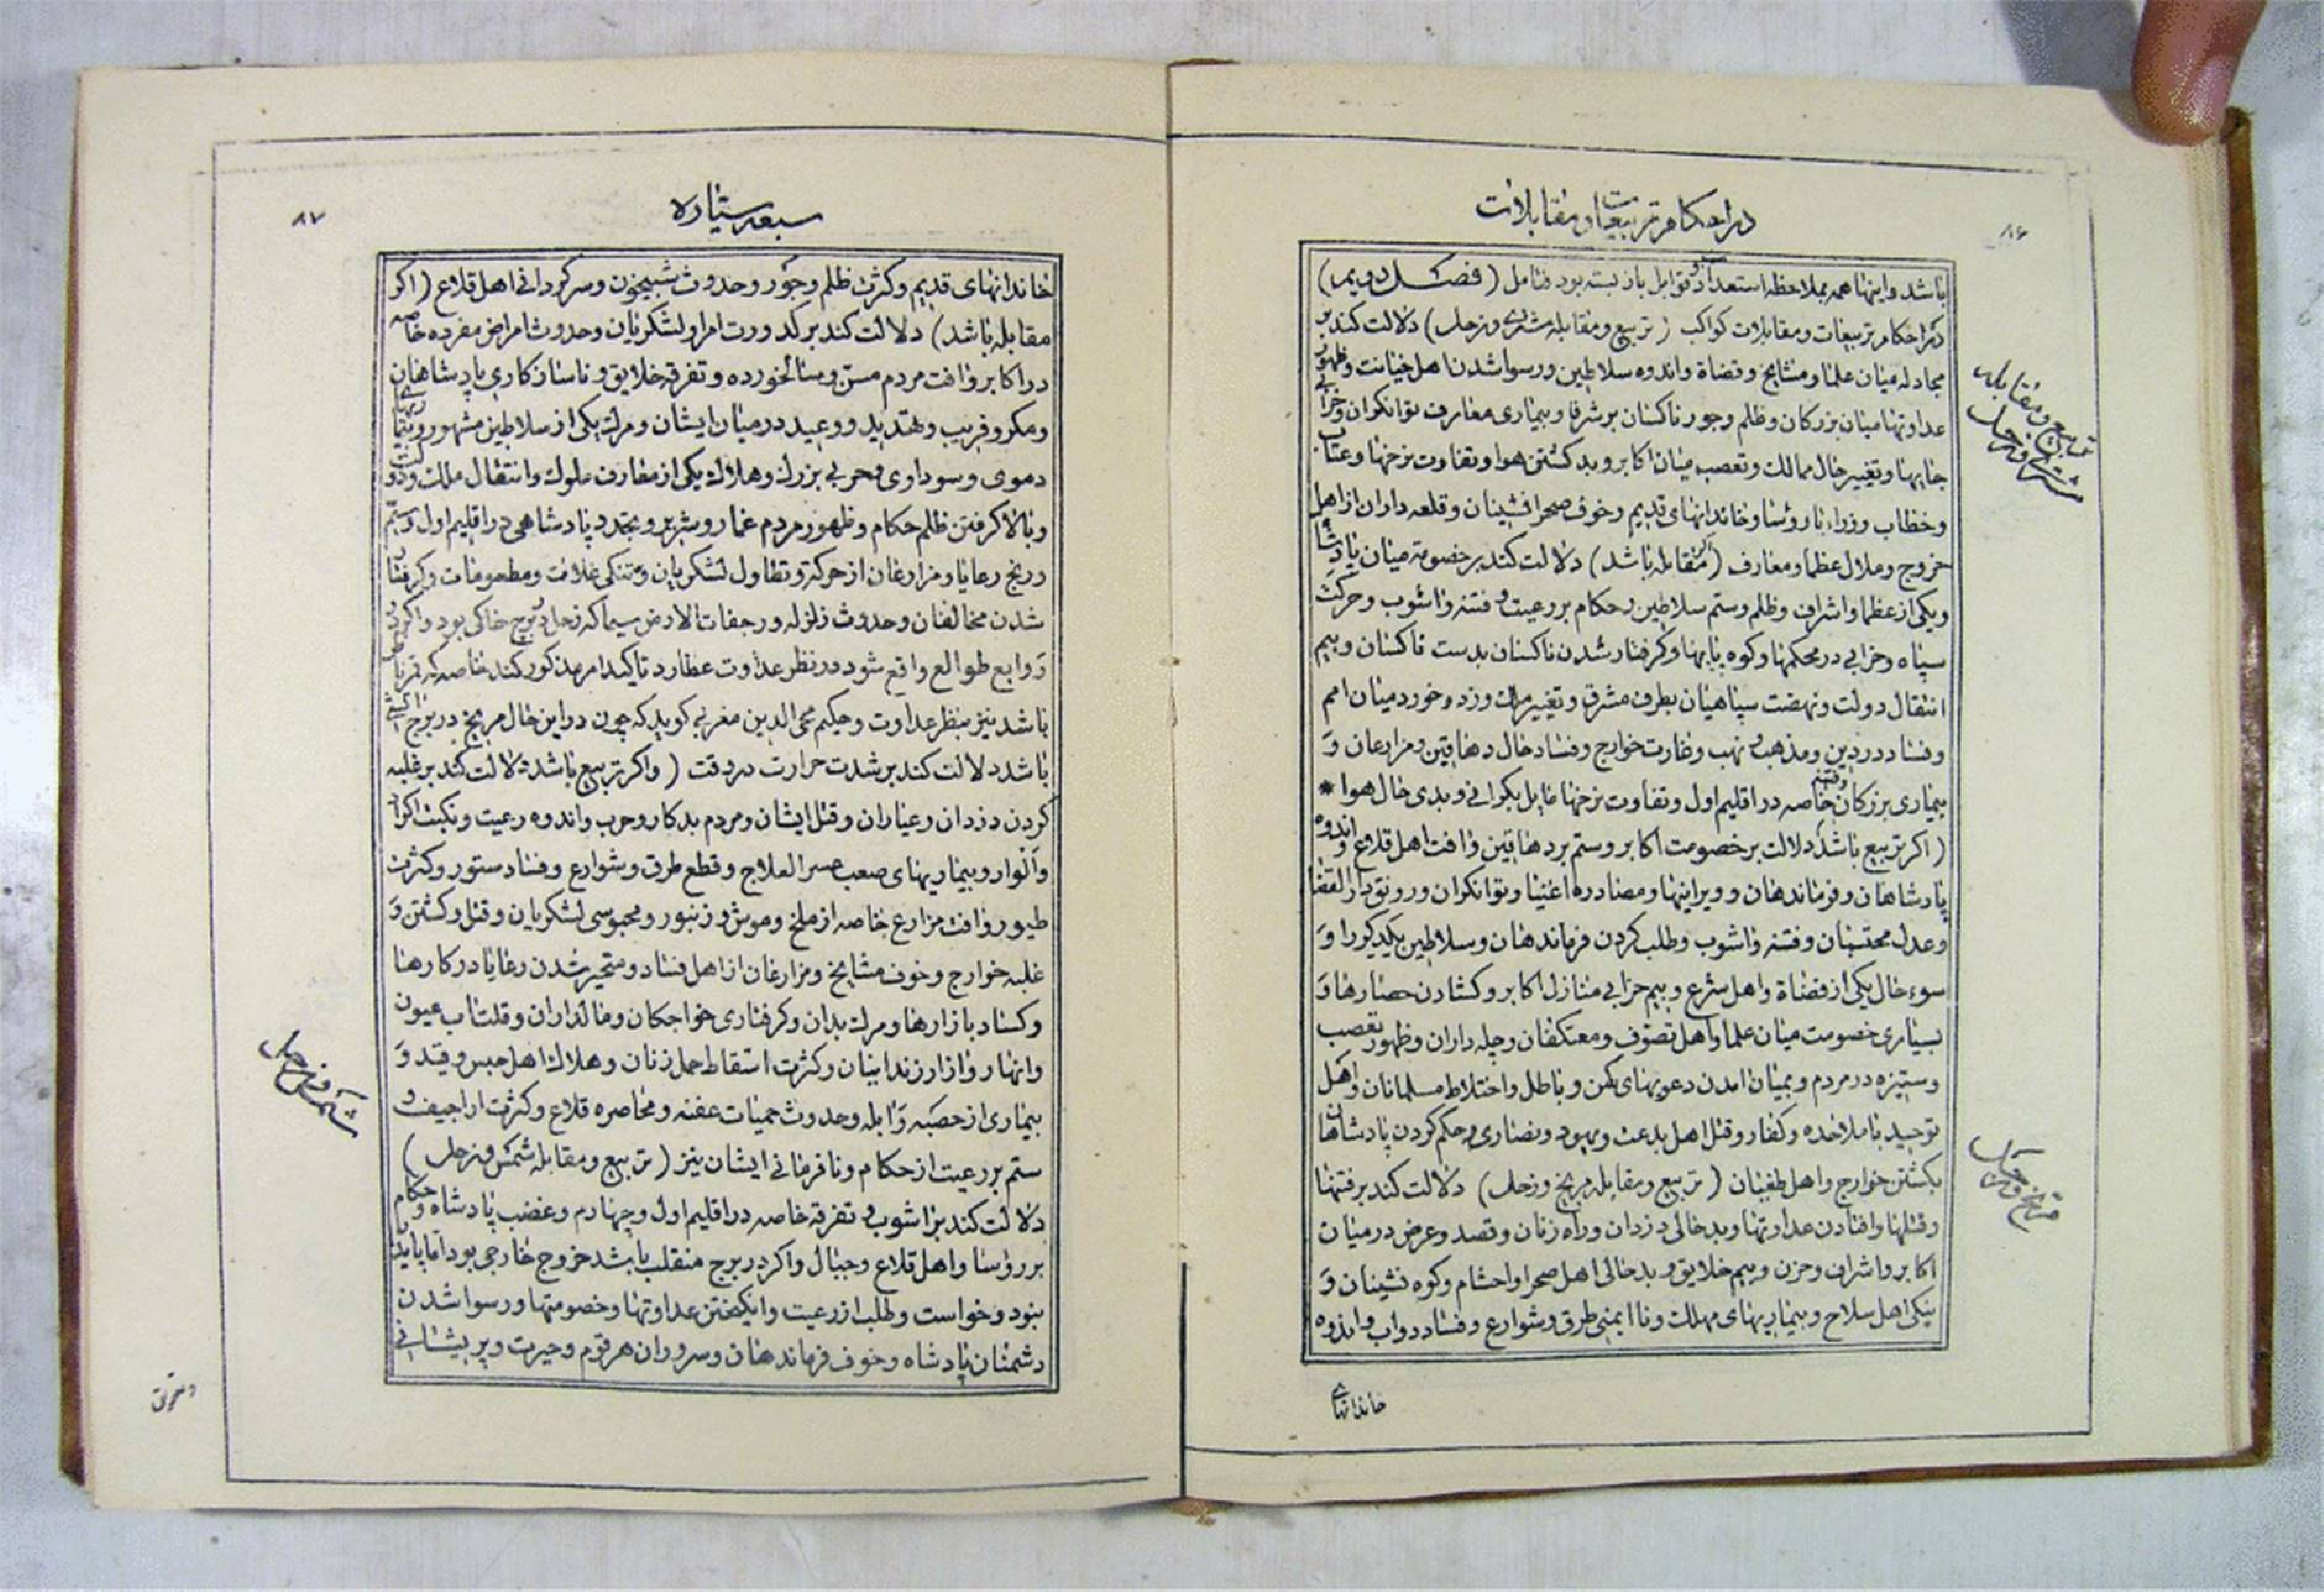 در احکام تربیعات و مقابلات
۸۶
باشد و اینها همه بملاحظه استعداد و قوابل باز بسته بود فتامل (فصل دویم)
در احکام تربیعات و مقابلات کواکب (تربیع و مقابله مشتری و زحل) دلالت کند بر
مجادله میان علما و مشایخ و قضاة و اندوه سلاطین و رسوا شدن اهل خیانت و ظهور
عداوتها میان بزرکان و ظلم و جور ناکسان بر شرفا و بیماری معارف توانکران و خرابی
جایها و تغییر حال ممالک و تعصب میان اکابر و بد کشتن هوا و تفاوت نرخها و عتاب
و خطاب وزراء با رؤسا و خاندانهای قدیم و خوف صحرا نشینان و قلعه داران از اهل
خروج و ملال عظما و معارف (اکر مقابله باشد) دلالت کند بر خصومة میان پادشاه
و یکی از عظما و اشراف و ظلم و ستم سلاطین و حکام بر رعیت و فتنه و اشوب و حرکت
سپاه و خرابی در محکمها و کوه پایها و کرفتار شدن ناکسان بدست ناکسان و بیم
انتقال دولت و نهضت سپاهیان بطرف مشرق و تغییر ملک و زد و خورد میان امم
و فساد در دین و مذهب و نهب و غارت خوارج و فساد حال دهاقین و مزارعان و
بیماری بزرکان و فتنه خاصه در اقلیم اول و تفاوت نرخها مایل بکرانی و بدی حال هوا *
(اکر تربیع باشد) دلالت بر خصومت اکابر و ستم بر دهاقین و افت اهل قلاع و اندوه
پادشاهان و فرماندهان و ویرانیها و مصادره اغنیا و توانکران و رونق دار القضا
و عدل محتسبان و فتنه و اشوب و طلب کردن فرماندهان و سلاطین یکدیکر را و
سوء حال یکی از قضاة و اهل شرع و بیم خرابی منازل اکابر و کشادن حصارها و
بسیاری خصومت میان علما و اهل تصوف و معتکفان و چله داران و ظهور تعصب
و ستیزه در مردم و بمیان امدن دعویهای کهن و باطل و اختلاط مسلمانان و اهل
توحید با ملاحده و کفار و قتل اهل بدعت و یهود و نصاری و حکم کردن پادشاهان
بکشتن خوارج و اهل طغیان (تربیع و مقابله مریخ و زحل) دلالت کند بر فتنها
و قتلها و افتادن عداوتها و بد حالی دزدان و راه زنان و قصد و عرض در میان
اکابر و اشراف و حزن و بیم خلایق و بد حالی اهل صحرا و احشام و کوه نشینان و
نیکی اهل سلاح و بیماریهای مهلک و نا ایمنی طرق و شوارع و فساد دواب و اندوه
خاندانهای
تربیع و مقابله
مشتری و زحل
مریخ و زحل
سبعه سیاره
۸۷
خاندانهای قدیم و کثرت ظلم و جور و حدوث شبیخون و سرکردانی اهل قلاع (اکر
مقابله باشد) دلالت کند بر کدورت امرا و لشکریان و حدوث امراض مفرده خاصه
در اکابر و افت مردم مسن و سالخورده و تفرقه خلایق و ناسازکاری پادشاهان
و مکر و فریب و تهدید و وعید در میان ایشان و مرک یکی از سلاطین مشهور و بیماریهای
دموی و سوداوی و حربی بزرک و هلاک یکی از معارف ملوک و انتقال ملک و دولت
و بالا کرفتن ظلم حکام و ظهور مردم غماز و شریر و تجدد پادشاهی در اقلیم اول و ستم
و رنج رعایا و مزارعان از حرکة و تطاول لشکریان و تنکی غلات و مطعومات و کرفتار
شدن مخالفان و حدوث زلزله و رجفات الارض سیما که زحل در برج خاکی بود و اکر در
روابع طوالع واقع شود در نظر عداوت عطارد تاکید امر مذکور کند خاصه که قمر ناظر
باشد نیز بنظر عداوت و حکیم محی الدین مغربی کوید که چون در این حال مریخ در برج اتشی
باشد دلالت کند بر شدت حرارت در وقت (واکر تربیع باشد) دلالت کند بر غلبه
کردن دزدان و عیاران و قتل ایشان و مردم بدکار و حرب و اندوه رعیت و نکبت اکراد
و الوار و بیماریهای صعب عسر العلاج و قطع طرق و شوارع و فساد ستور و کثرت
طیور و افت مزارع خاصه از ملخ و موش و زنبور و محبوسی لشکریان و قتل و کشتن و
غلبه خوارج و خوف مشایخ و مزارعان از اهل فساد و متحیر شدن رعایا در کارها
و کساد بازارها و مرک بدان و کرفتاری خواجکان و مالداران و قلت اب عیون
و انهار و ازار زندانیان و کثرت اسقاط حمل زنان و هلاک اهل حبس و قید و
بیماری از حصبه و ابله و حدوث حمیات عفنه و محاصره قلاع و کثرت اراجیف و
ستم بر رعیت از حکام و نافرمانی ایشان نیز (تربیع و مقابله شمس و زحل)
دلالت کند بر اشوب و تفرقه خاصه در اقلیم اول و چهارم و غضب پادشاه و حکام
بر رؤسا و اهل قلاع و جبال و اکر در برج منقلب باشد خروج خارجی بود اما پایدار
نبود و خواست و طلب از رعیت و انکیختن عداوتها و خصومتها و رسوا شدن
دشمنان پادشاه و خوف فرماندهان و سروران هر قوم و حیرت و پریشانی
شمس و زحل